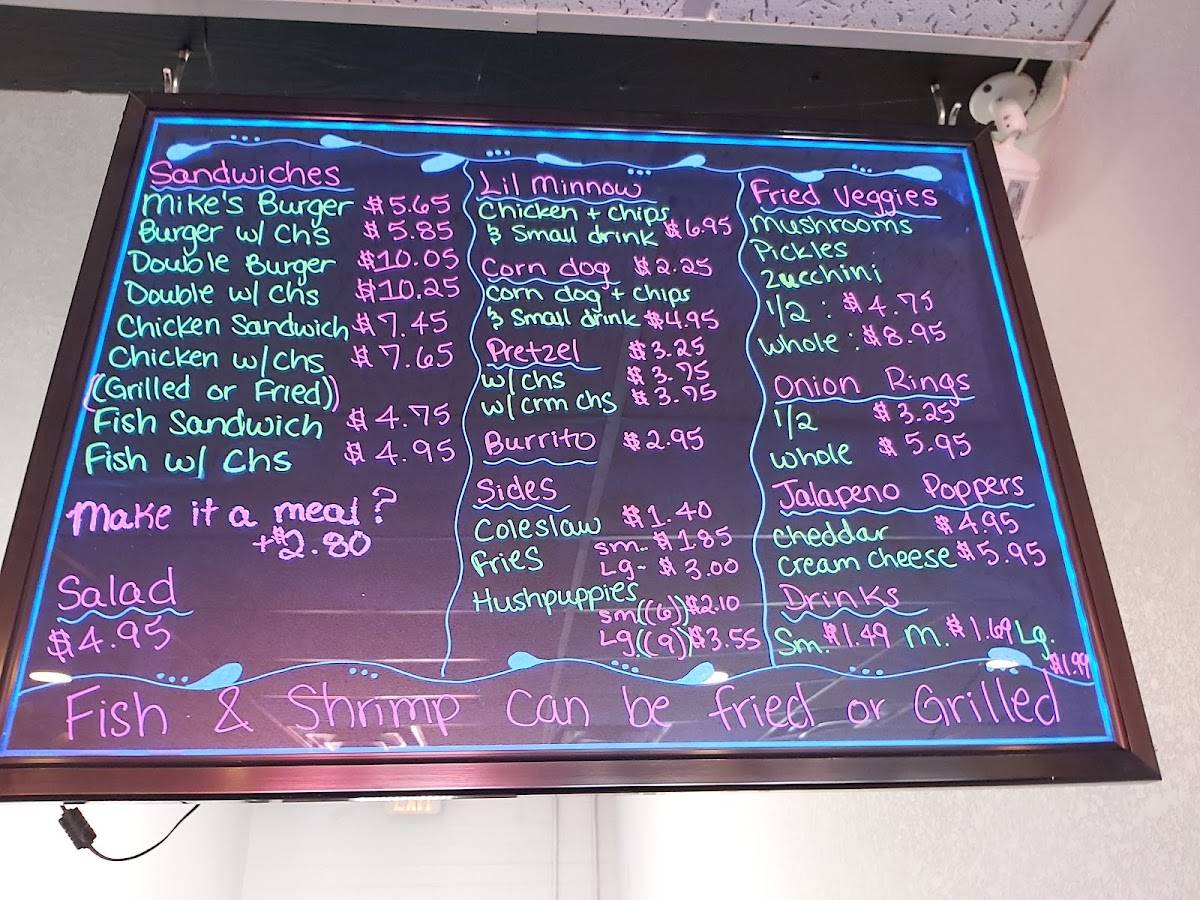 Sandwiches
Mike's Burger $5.65
Burger w/ chs $5.85
Double Burger $10.05
Double w/ chs $10.25
Chicken Sandwich $7.45
Chicken w/chs $7.65
(Grilled or Fried)
Fish Sandwich $4.75
Fish w/ chs $4.95
Make it a meal?
+$2.80
Salad
$4.95
Lil Minnow
Chicken + chips
& Small drink $6.95
Corn dog $2.25
corn dog + chips
& Small drink $4.95
Pretzel $3.25
w/ chs $3.75
w/ crm chs $3.75
Burrito $2.95
Sides
Coleslaw $1.40
Fries sm- $1.85
Lg- $3.00
Hushpuppies
sm((6)) $2.10
Lg((9)) $3.55
Fried Veggies
Mushrooms
Pickles
Zucchini
1/2 : $4.75
whole : $8.95
Onion Rings
1/2 $3.25
whole $5.95
Jalapeno Poppers
cheddar $4.95
cream cheese $5.95
Drinks
Sm. $1.49 m. $1.69 Lg.
$1.99
Fish & Shrimp can be fried or Grilled
EXIT